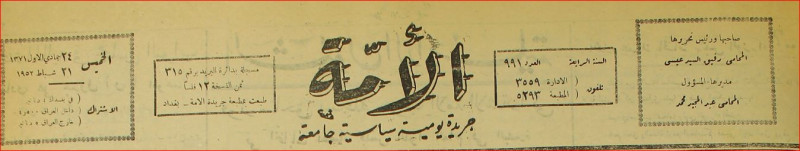 صاحبها ورئيس تحريرها
المحامي رفيق السيد عيسى
مديرها المسؤول
المحامي عبد المجيد محمد
السنة الرابعة العدد ٩٩١
تلفون ( الادارة ٣٥٥٩
( المطبعة ٥٢٩٣
الأمة
جريدة يومية سياسية جامعة
مسجلة بدائرة البريد برقم ٣١٥
ثمن النسخة ١٢ فلساً
طبعت بمطبعة جريدة الامة - بغداد
الخميس
٢٤ جمادي الاول ١٣٧١
٢١ شباط ١٩٥٢
الاشتراك
في بغداد
داخل العراق
خارج العراق